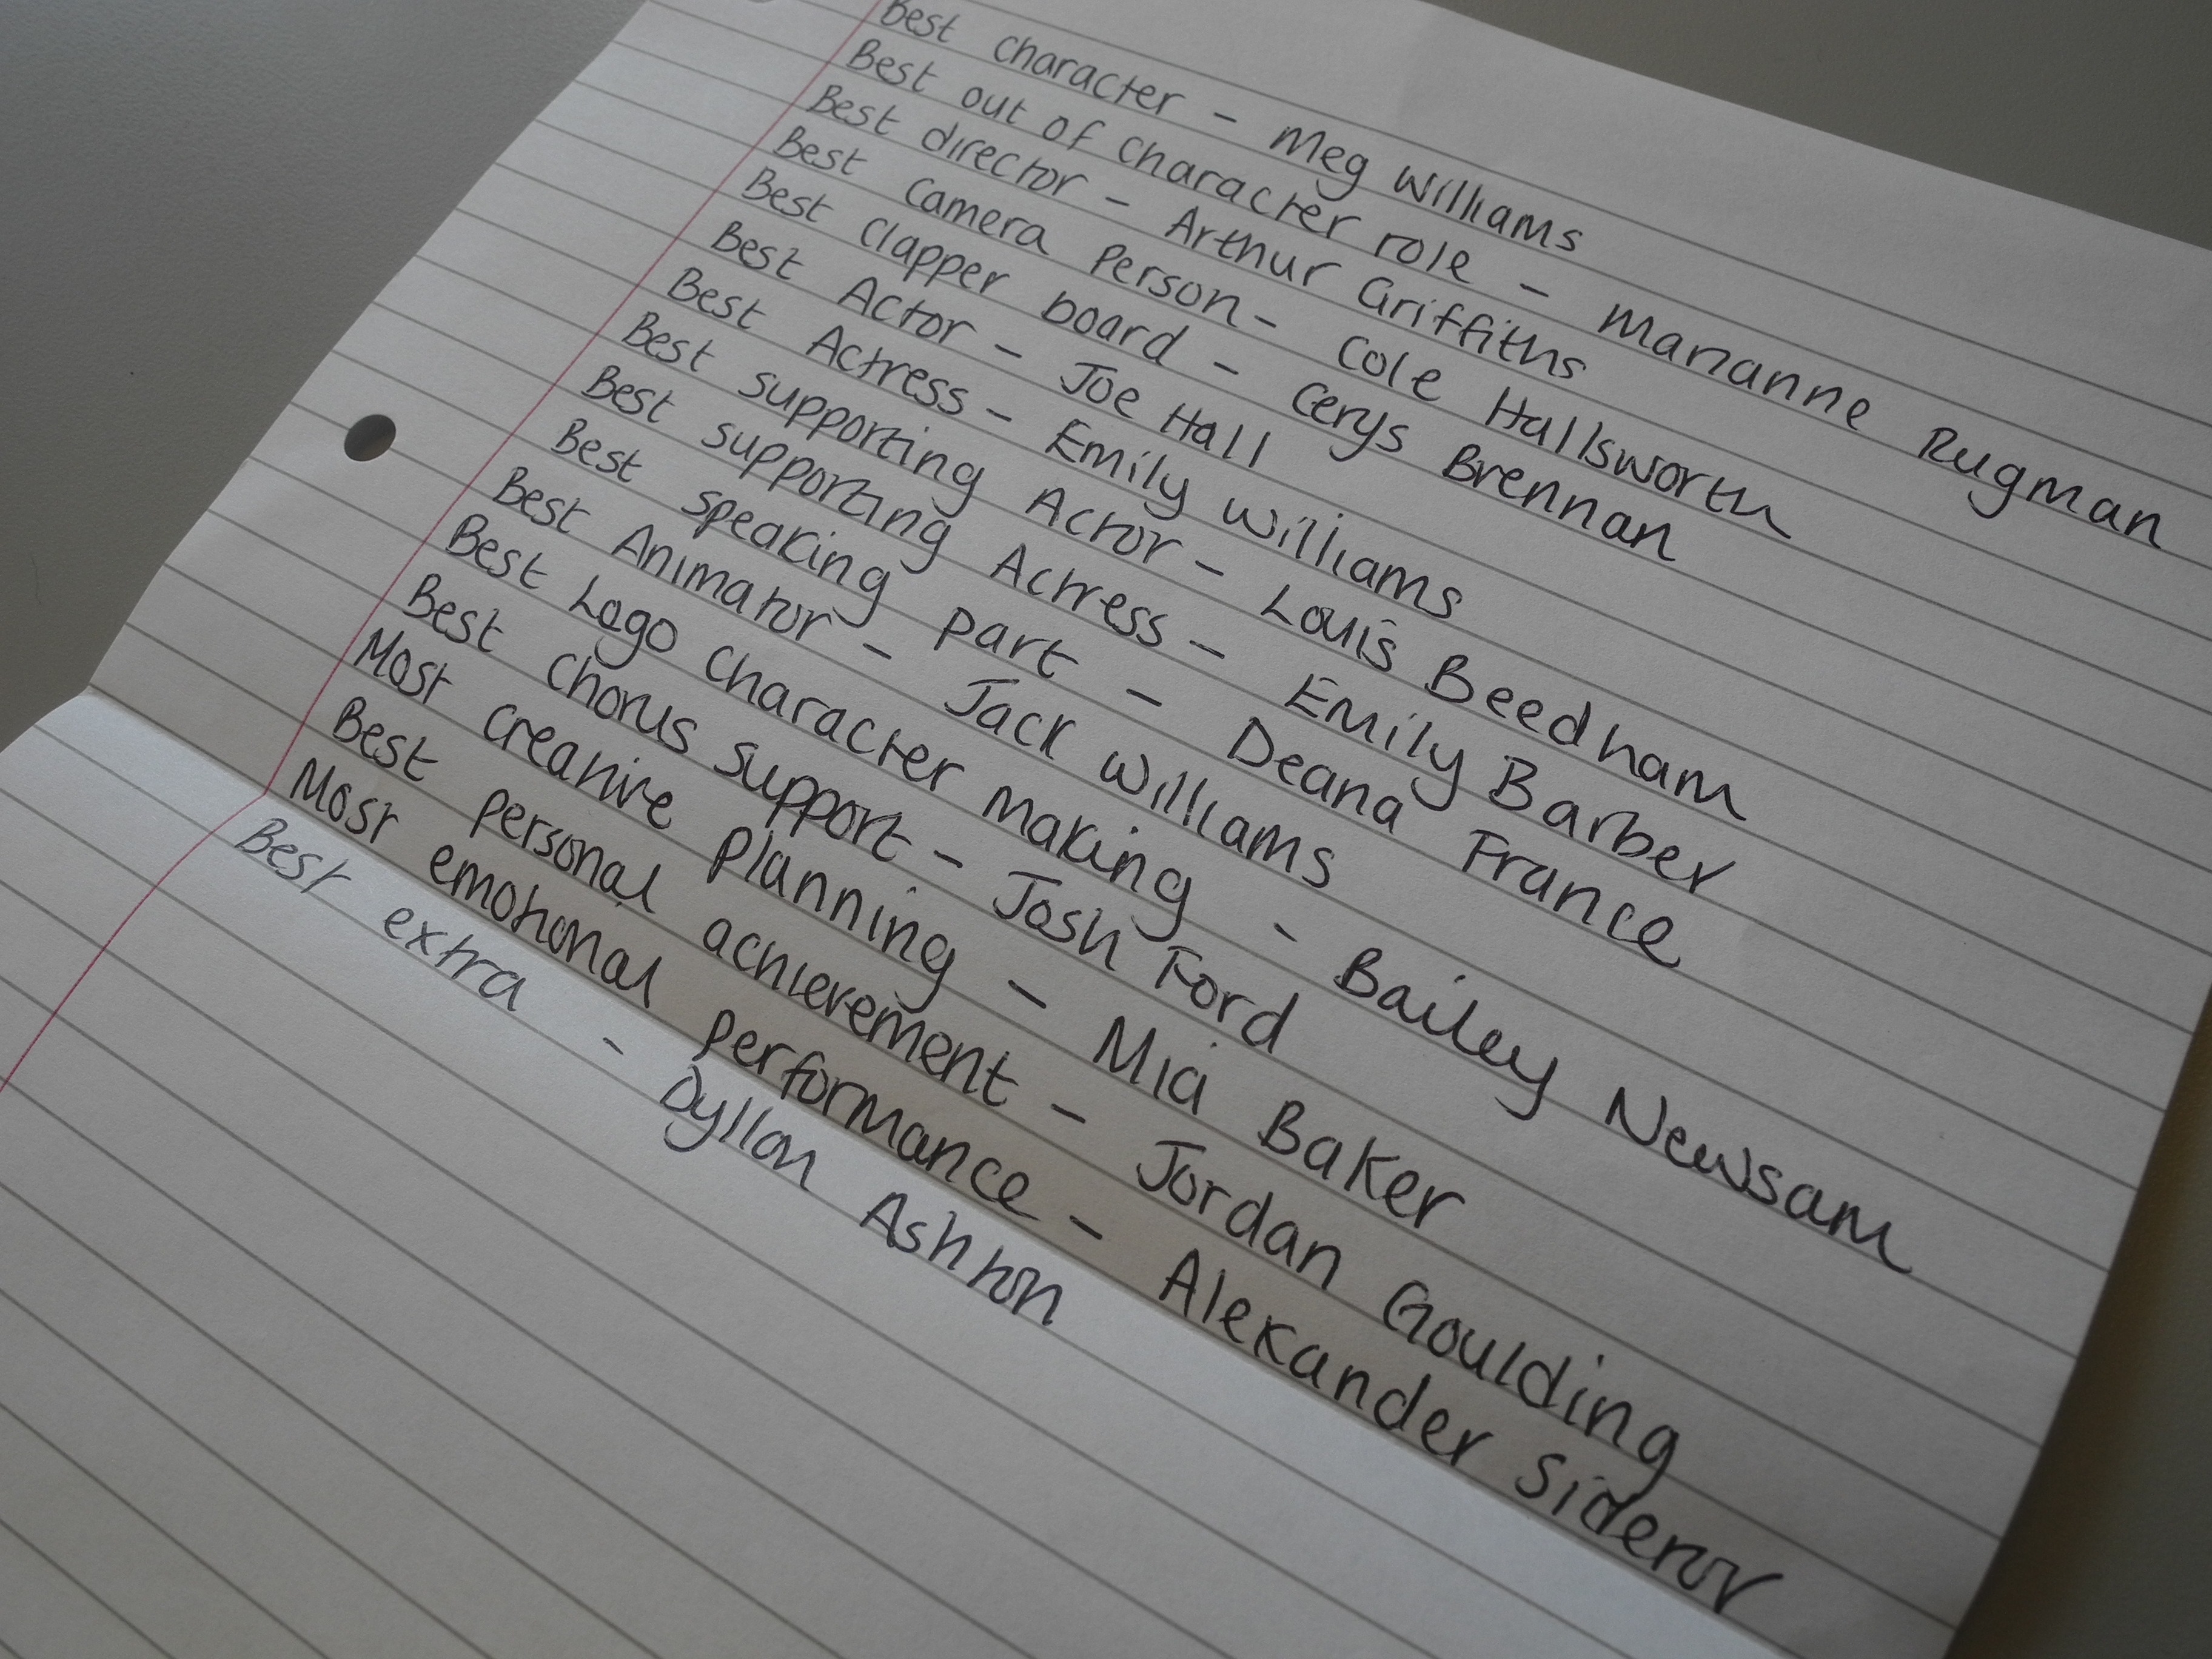 Best character - Meg Williams
Best out of character role - Marianne Rugman
Best director - Arthur Griffiths
Best camera person - Cole Hallsworth
Best clapper board - Cerys Brennan
Best Actor - Joe Hall
Best Actress - Emily Williams
Best supporting Actor - Louis Beedham
Best supporting Actress - Emily Barber
Best speaking part - Deana France
Best Animator - Jack Williams
Best Logo character making - Bailey Newsam
Best chorus support - Josh Ford
Most creative planning - Mia Baker
Best personal achievement - Jordan Goulding
Most emotional performance - Alexander Siderov
Best extra - Dyllon Ashton